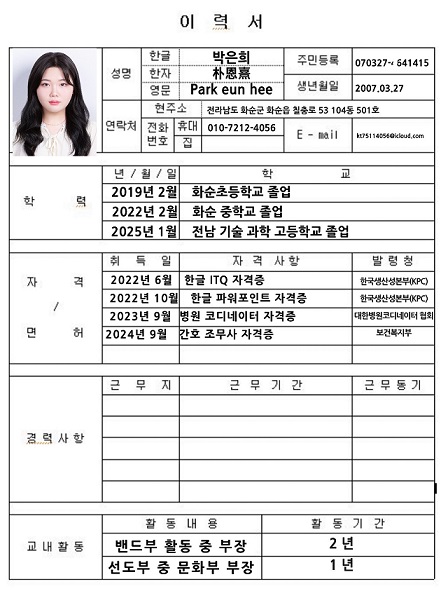 이 력 서
성명 한글 박은희 주민등록 070327~ 641415
한자 朴恩熹
영문 Park eun hee 생년월일 2007.03.27
연락처 현주소 전라남도 화순군 화순읍 칠충로 53 104동 501호
전화번호 휴대 010-7212-4056 E - mail kt75114056@icloud.com
집
학 력 년 / 월 / 일 학 교
2019년 2월 화순초등학교 졸업
2022년 2월 화순 중학교 졸업
2025년 1월 전남 기술 과학 고등학교 졸업
자 격 / 면 허 취 득 일 자 격 사 항 발 령 청
2022년 6월 한글 ITQ 자격증 한국생산성본부(KPC)
2022년 10월 한글 파워포인트 자격증 한국생산성본부(KPC)
2023년 9월 병원 코디네이터 자격증 대한병원코디네이터 협회
2024년 9월 간호 조무사 자격증 보건복지부
경 력 사 항 근 무 지 근 무 기 간 근 무 동 기
교 내 활 동 활 동 내 용 활 동 기 간
밴드부 활동 중 부장 2 년
선도부 중 문화부 부장 1 년